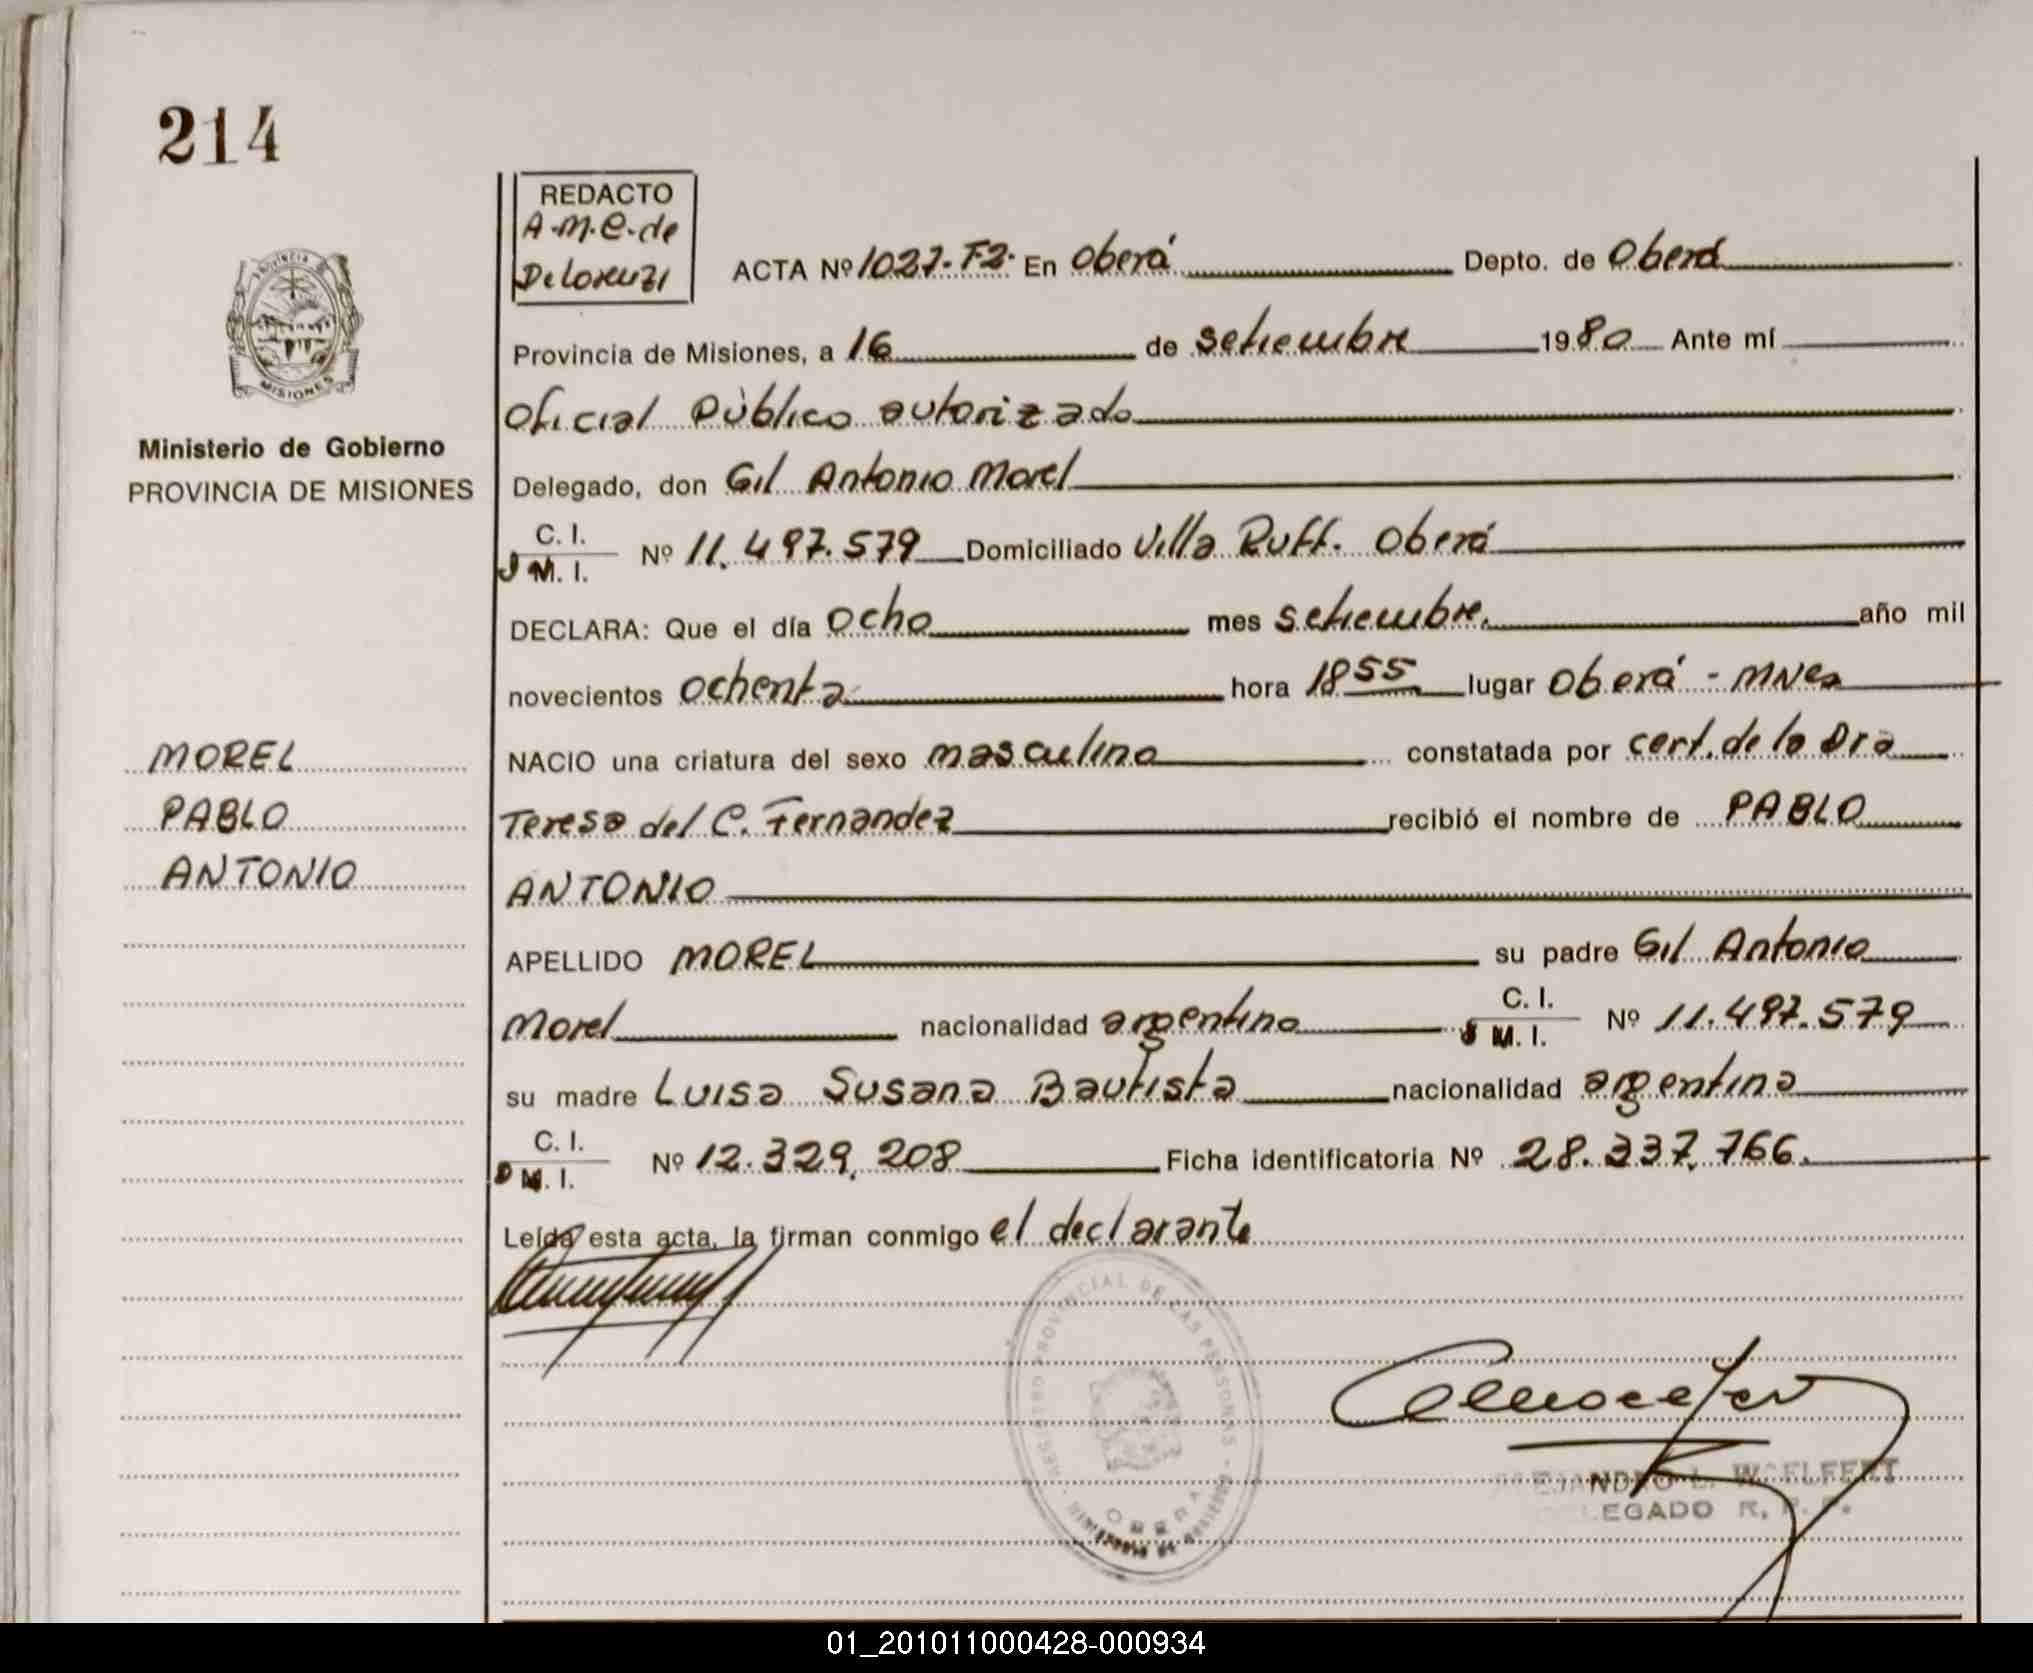 214
REDACTO
A.M.C. de
De Lorenzi
ACTA Nº 1027-F2. En Oberá Depto. de Oberá
Provincia de Misiones, a 16 de setiembre 1980 Ante mí
Oficial Público autorizado
Ministerio de Gobierno
PROVINCIA DE MISIONES
Delegado, don Gil Antonio Morel
C. I.
M. I. Nº 11.497.579 Domiciliado Villa Ruff. Oberá
DECLARA: Que el día ocho mes setiembre. año mil
novecientos ochenta hora 18 55 lugar Oberá - Mnes
NACIO una criatura del sexo masculino constatada por cert. de la Dra
Teresa del C. Fernandez recibió el nombre de PABLO
ANTONIO
MOREL
PABLO
ANTONIO
APELLIDO MOREL su padre Gil Antonio
Morel nacionalidad argentino C. I.
M. I. Nº 11.497.579
su madre Luisa Susana Bautista nacionalidad argentina
C. I.
M. I. Nº 12.329.208 Ficha identificatoria Nº 28.337.766.
Leída esta acta, la firman conmigo el declarante
REGISTRO PROVINCIAL DE LAS PERSONAS
OBERA
WOELFERT
DELEGADO R. P. P.
01_201011000428-000934